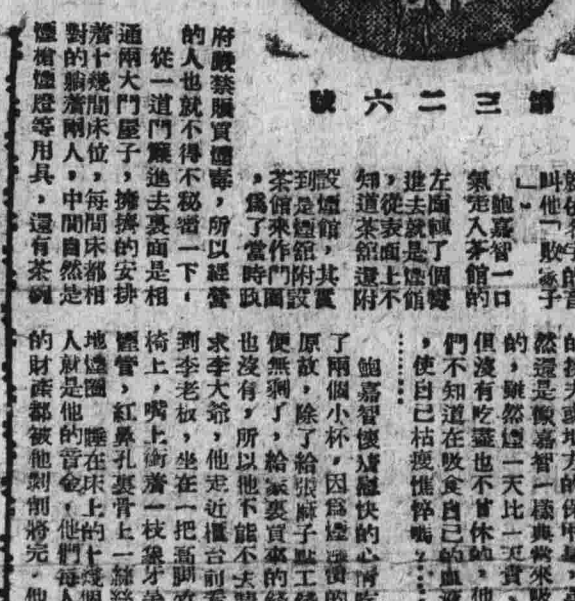 第三二六號
就依着字的音
叫他「敗家子
」。
鮑嘉智一口
氣走入茶館的
左面轉了個彎
進去就是煙館
，從表面上不
知道茶舘還附
設煙館，其實
到是煙舘附設
茶館來作門面
，爲了當時政
府嚴禁販賣煙毒，所以經營
的人也就不得不秘密一下，
從一道門簾進去裏面是相
通兩大門屋子，擁擠的安排
着十幾間床位，每間床都相
對的躺着兩人，中間自然是
煙槍煙燈等用具，還有茶碗
然還是像嘉智一樣典當來吸
的，雖然煙一天比一天貴，
但沒有吃盡也不甘休的，他
們不知道在吸食自己的血液
，使自己枯瘦憔悴嗎？……
……
鮑嘉智懷着慰快的心情吃
了兩個小杯，因爲煙漲價的
原故，除了給張麻子點工錢
便無剩了，給家裏買來的錢
也沒有，所以他不能不去
求李大爺，他走近櫃台前看
到李老板，坐在一把高脚
椅上，嘴上銜着一枝象牙
煙管，紅鼻孔裏冒上一絲絲
地煙圈，睡在床上的十幾個
人就是他的資金，他們每人
的財產都被他剝削將完，他